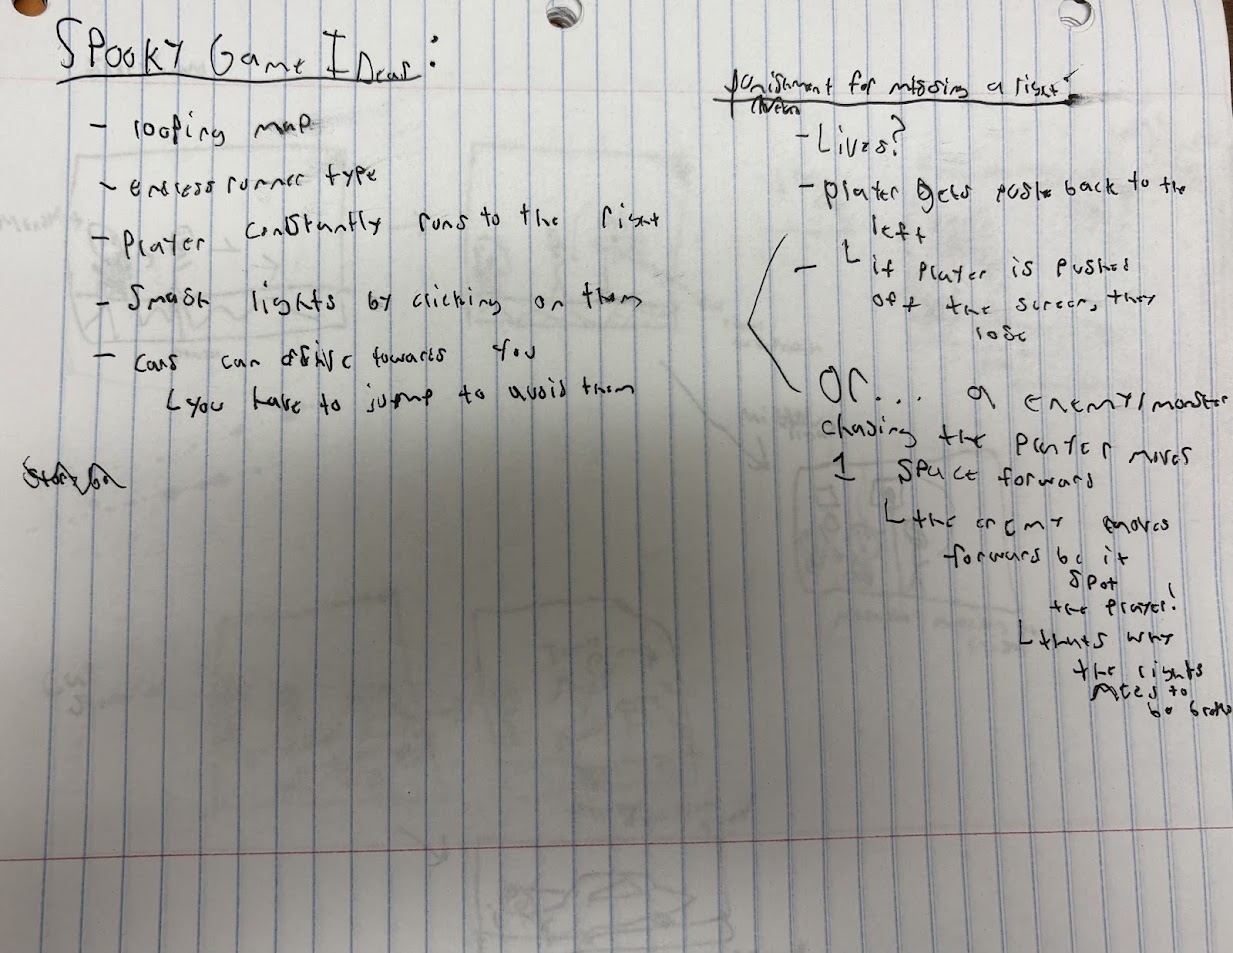 Spooky Game Ideas:
- looping map
- endless runner type
- Player constantly runs to the right
- Smash lights by clicking on them
- cars can drive towards you
└ you have to jump to avoid them
punishment for missing a light:
- Lives?
- player gets push back to the
left
- └ if player is pushed
off the screen, they
lose
Or... a enemy/monster
chasing the player moves
1 space forward
└ the enemy moves
forward bc it
spot
the player!
└ thats why
the lights
need to
be broken